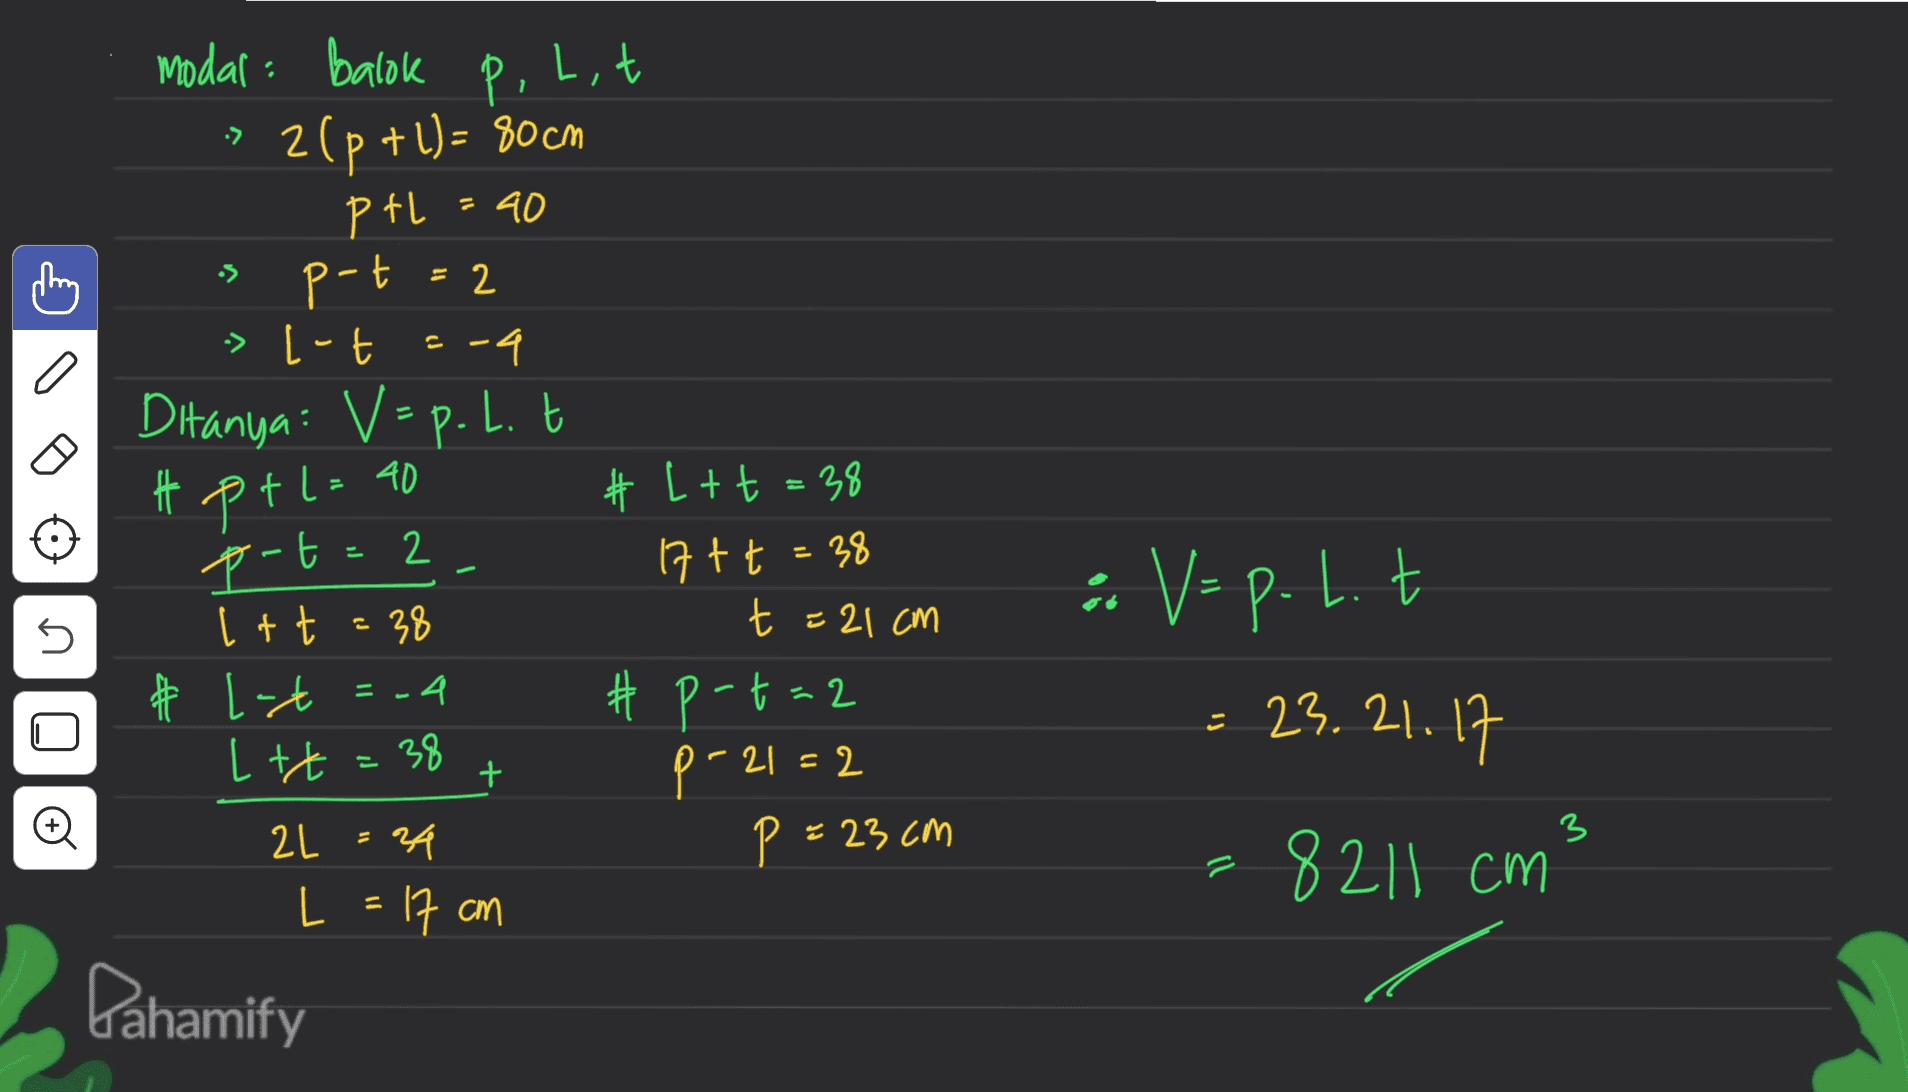 modal : balok p, L, t
-> 2(p + l) = 80 cm
p + L = 40
-> p - t = 2
-> L - t = -4
Ditanya : V = p. L. t
# p + l = 40
p - t = 2 -
l + t = 38
# L - t = -4
L + t = 38 +
2L = 34
L = 17 cm
# L + t = 38
17 + t = 38
t = 21 cm
# p - t = 2
p - 21 = 2
p = 23 cm
∴ V = p. L. t
= 23. 21. 17
= 8211 cm³
Pahamify